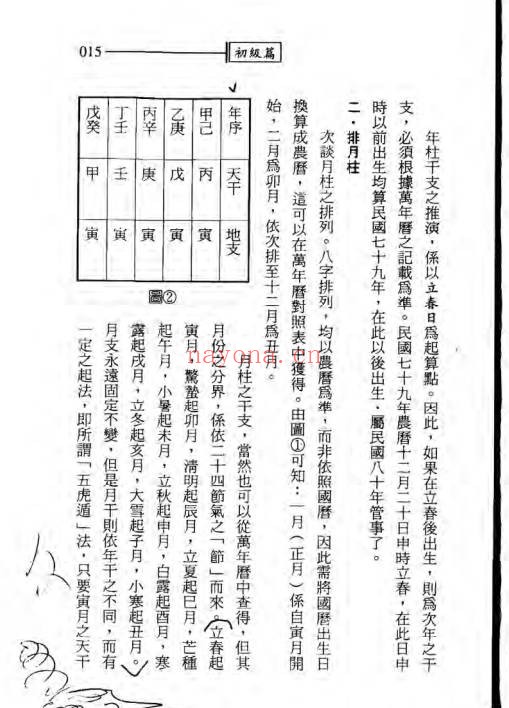 015
初級篇
年柱干支之推演，係以立春日爲起算點。因此，如果在立春後出生，則爲次年之干
支，必須根據萬年曆之記載爲準。民國七十九年農曆十二月二十日申時立春，在此日申
時以前出生均算民國七十九年，在此以後出生．屬民國八十年管事了。
二．排月柱
次談月柱之排列。八字排列，均以農曆爲準，而非依照國曆，因此需將國曆出生日
換算成農曆，這可以在萬年曆對照表中獲得。由圖①可知：一月（正月）係自寅月開
始，二月爲卯月，依次排至十二月爲丑月。
年序 天干 地支
甲己 丙 寅
乙庚 戊 寅
丙辛 庚 寅
丁壬 壬 寅
戊癸 甲 寅
圖②
月柱之干支，當然也可以從萬年曆中查得，但其
月份之分界，係依二十四節氣之「節」而來。立春起
寅月，驚蟄起卯月，清明起辰月，立夏起巳月，芒種
起午月，小暑起未月，立秋起申月，白露起酉月，寒
露起戌月，立冬起亥月，大雪起子月，小寒起丑月。
月支永遠固定不變，但是月干則依年干之不同，而有
一定之起法，即所謂「五虎遁」法，只要寅月之天干
nayona.cn